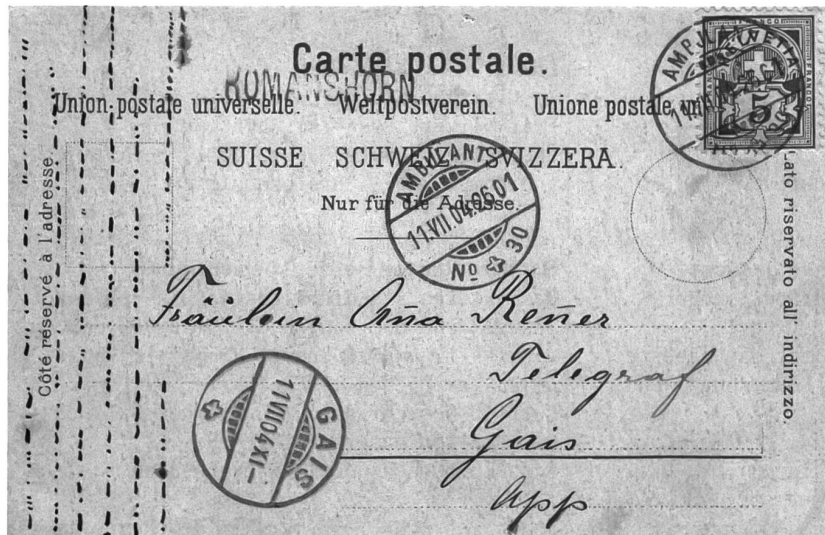 Carte postale.
ROMANSHORN
Union postale universelle. Weltpostverein. Unione postale
SUISSE SCHWEIZ SVIZZERA.
Nur für die Adresse.
HELVETIA
5
AMBULANT
11.VII.04
No 30
Côté réservé à l'adresse.
Lato riservato all' indirizzo.
Fräulein Aña Reñer
Telegraf
Gais
App
GAIS
11 VII 04 XI–